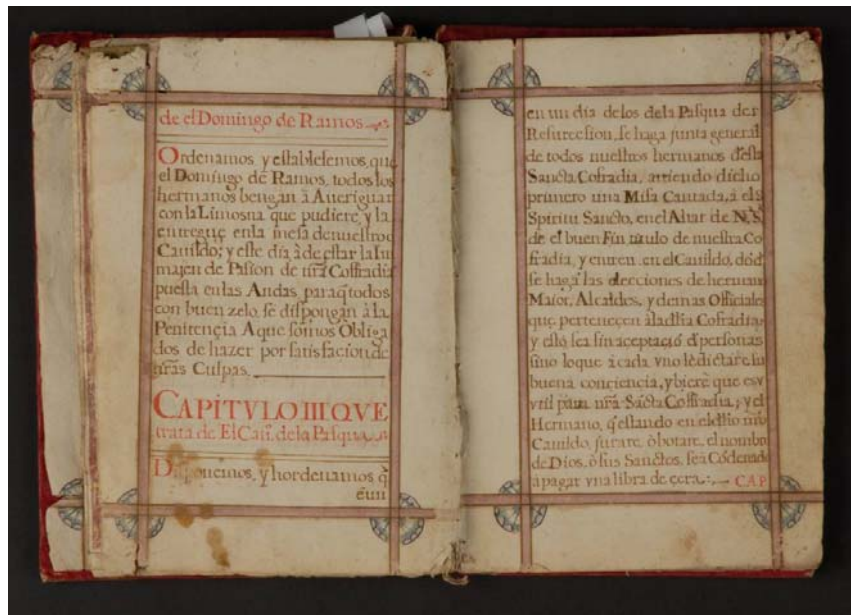 de el Domingo de Ramos
Ordenamos y establesemos, que
el Domingo de Ramos, todos los
hermanos bengan â Averiguar
con la Limosna que pudiere, y la
entregue en la mesa de nuestro
Cauildo; y este dia, â de estar la Im
majen de Pasion de nr̃a Coffradia
puesta en las Andas, para q̃ todos
con buen zelo, se dispongan â la
Penitençia A que somos Obliga
dos de hazer por satisfacion de
nr̃as Culpas.
CAPITVLO III QVE
trata de El Cau.º de la Pasqua
Disponemos, y hordenamos q̃
en un dia de los de la Pasqua de
Resurecsion, se haga junta general
de todos nuestros hermanos desta
Sancta Cofradia, auiendo dicho
primero una Misa Cantada, â el
Spiritu Sancto, en el Altar de N. S.
de el buen Fin titulo de nuestra Co
fradia, y entren en el Cauildo, dõd
se hagã las elecciones de herman
Maior, Alcaldes, y demas Officiale
que perteneçen â la dha Cofradia,
y esto sea sin aceptaciõ de personas
sino lo que â cada vno le dictare su
buena conciencia, y biere que es
vtil para nr̃a Sãcta Coffradia; y el
Hermano, q̃ estando en el dho nr̃o
Cauildo, jurare, ô botare, el nombre
de Dios, ô sus Sanctos, sea Cõdenado
â pagar vna libra de çera. CAP